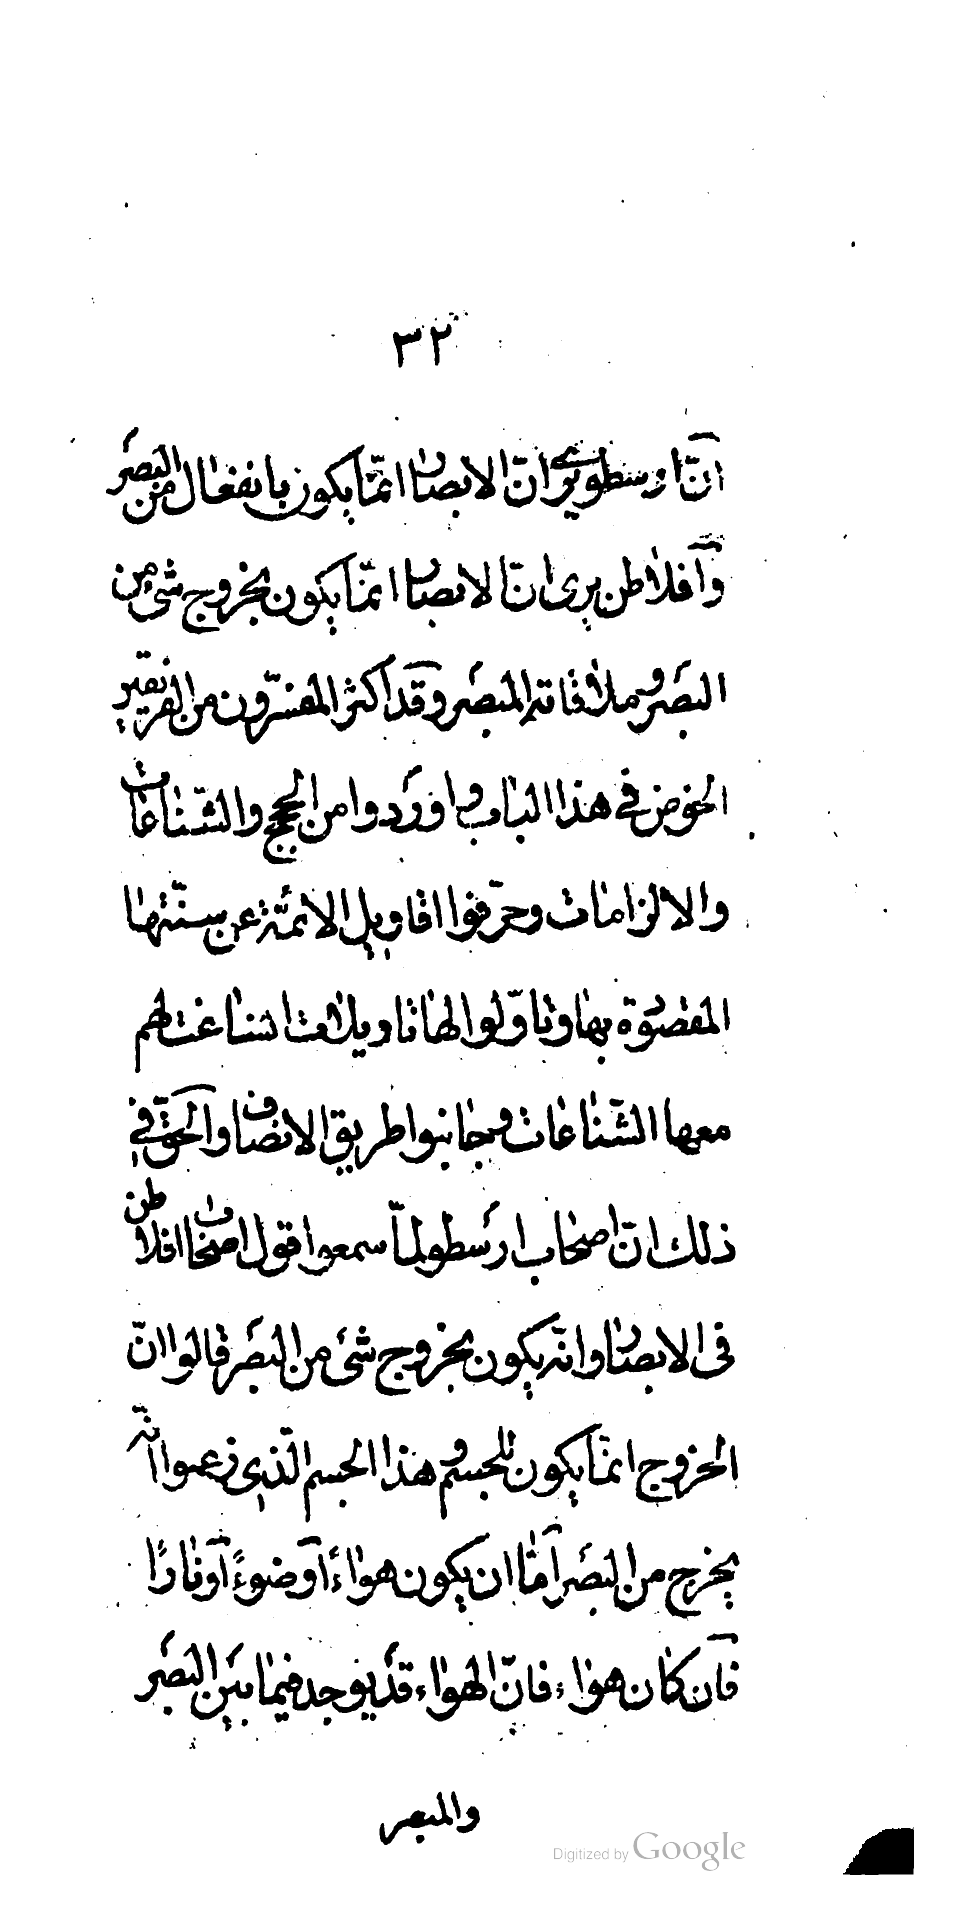 ٣٢
انّ ارسطو يرى انّ الابصار انمّا يكون بانفعال من البصر
وافلاطن يرى انّ الابصار انمّا يكون بخروج شئ من
البصر وملاقاته المبصر وقد اكثر المفسّرون من الفريقين
الخوض في هذا الباب واوردوا من الحجج والشّناعات
والالزامات وحرّفوا اقاويل الائمّة عن سنّتها
المقصودة بها وتاوّلوا لها تاويلات انساغت لهم
معها الشّناعات وجانبوا طريق الانصاف والحقّ في
ذلك انّ اصحاب ارسطو لمّا سمعوا قول اصحاب افلاطن
في الابصار وانّه يكون بخروج شئ من البصر قالوا انّ
الخروج انمّا يكون للجسم وهذا الجسم الّذي زعموا انّه
يخرج من البصر امّا ان يكون هواءً او ضوءً او نارًا
فان كان هواء فانّ الهواء قد يوجد فيما بين البصر
والمبصر
Digitized by Google